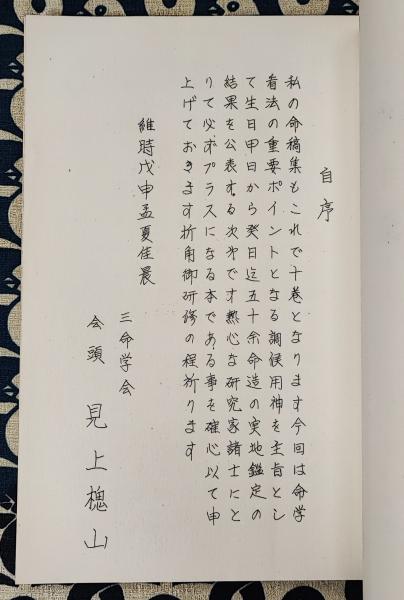 自序
私の命稿集もこれで十巻となります今回は命学
看法の重要ポイントとなる調候用神を主旨とし
て生日甲日から癸日迄五十余命造の実地鑑定の
結果を公表する次第です熱心な研究家諸士にと
りて必ずプラスになる本である事を確心以て申
上げておきます折角御研修の程祈ります
維時戊申孟夏佳晨
三命学会
会頭 見上 山